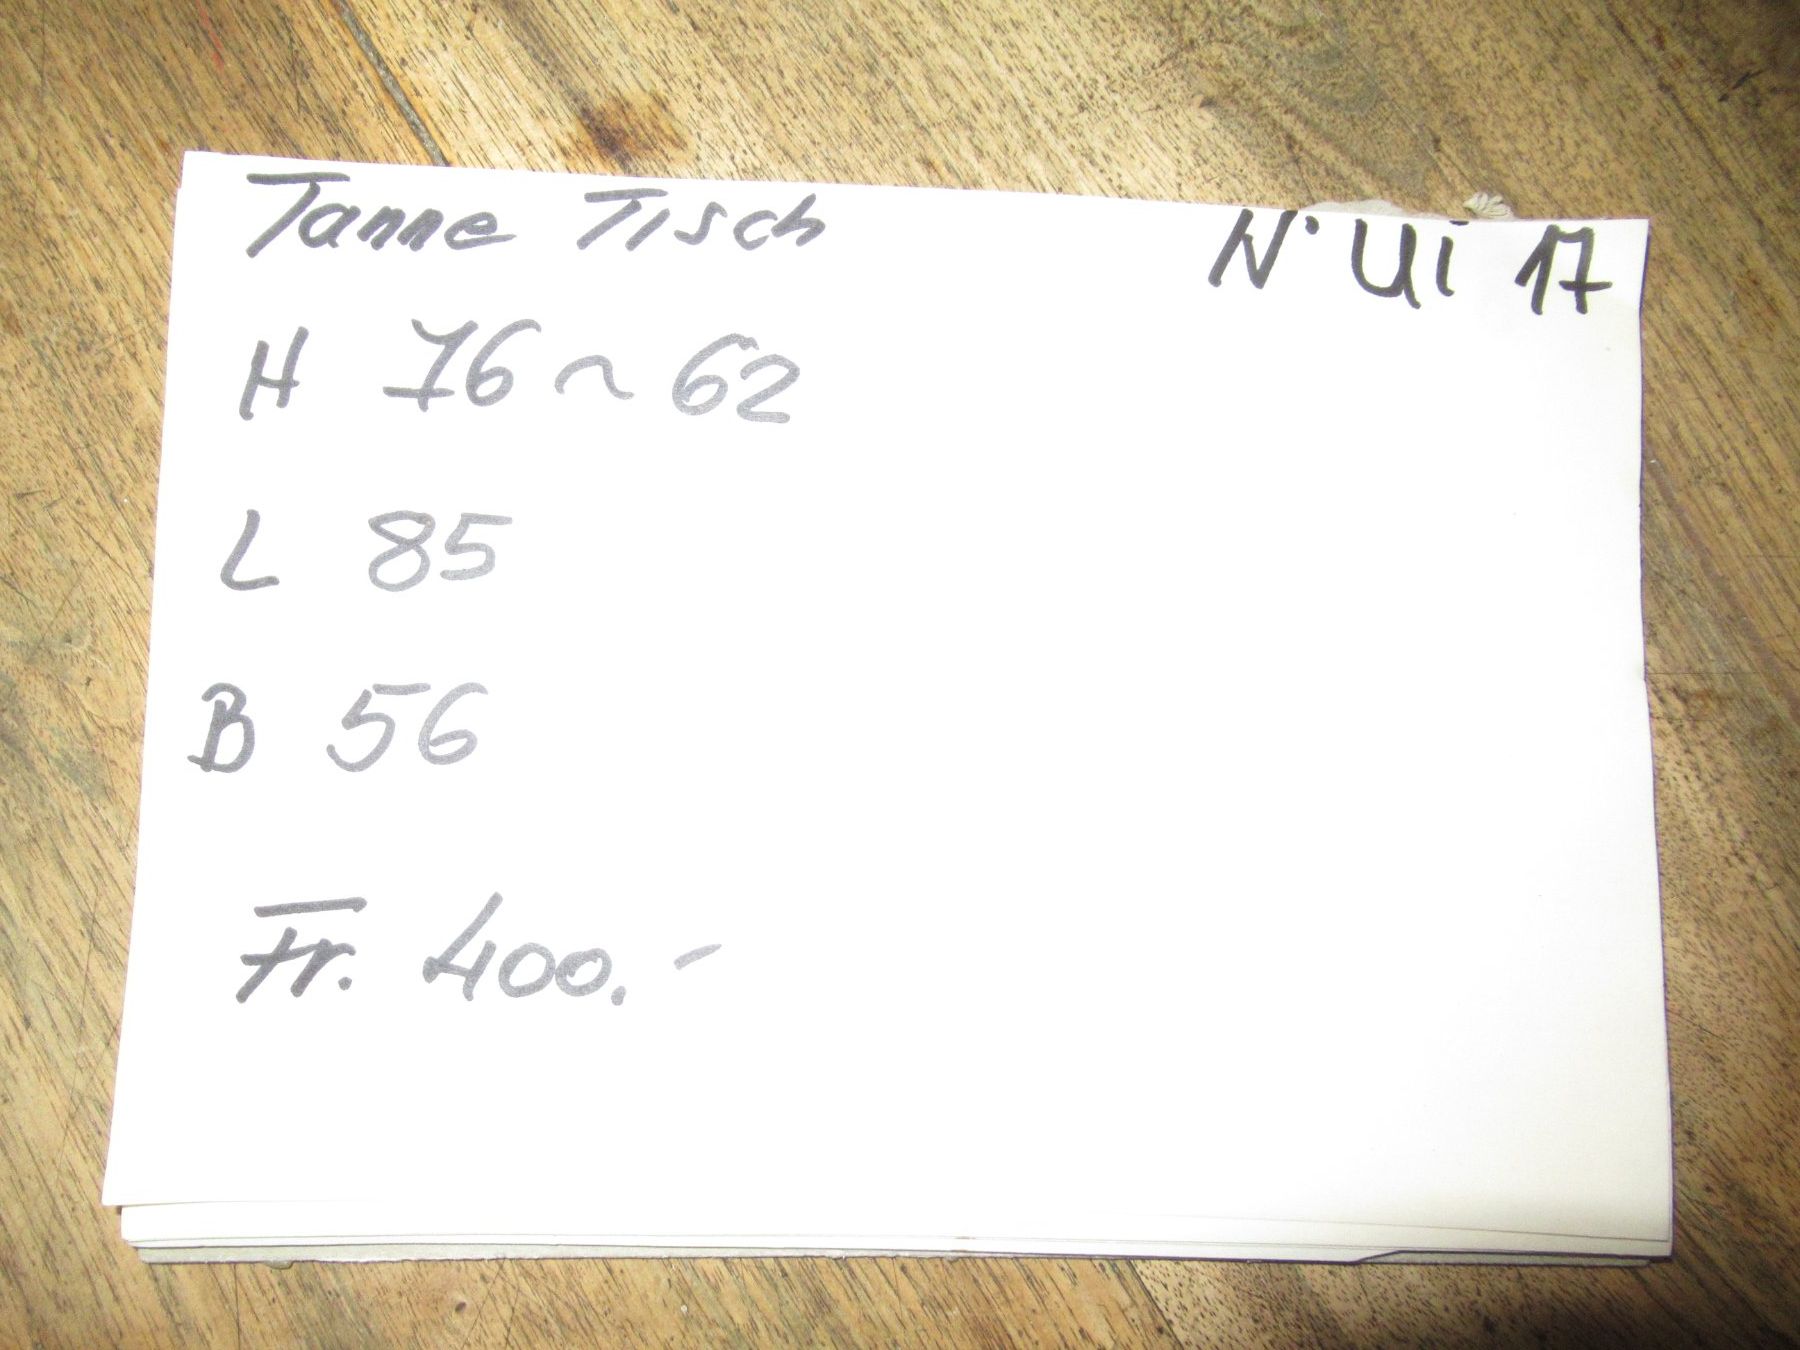 Tanne Tisch N° Ui 17
H 76 ~ 62
L 85
B 56
Fr. 400.-